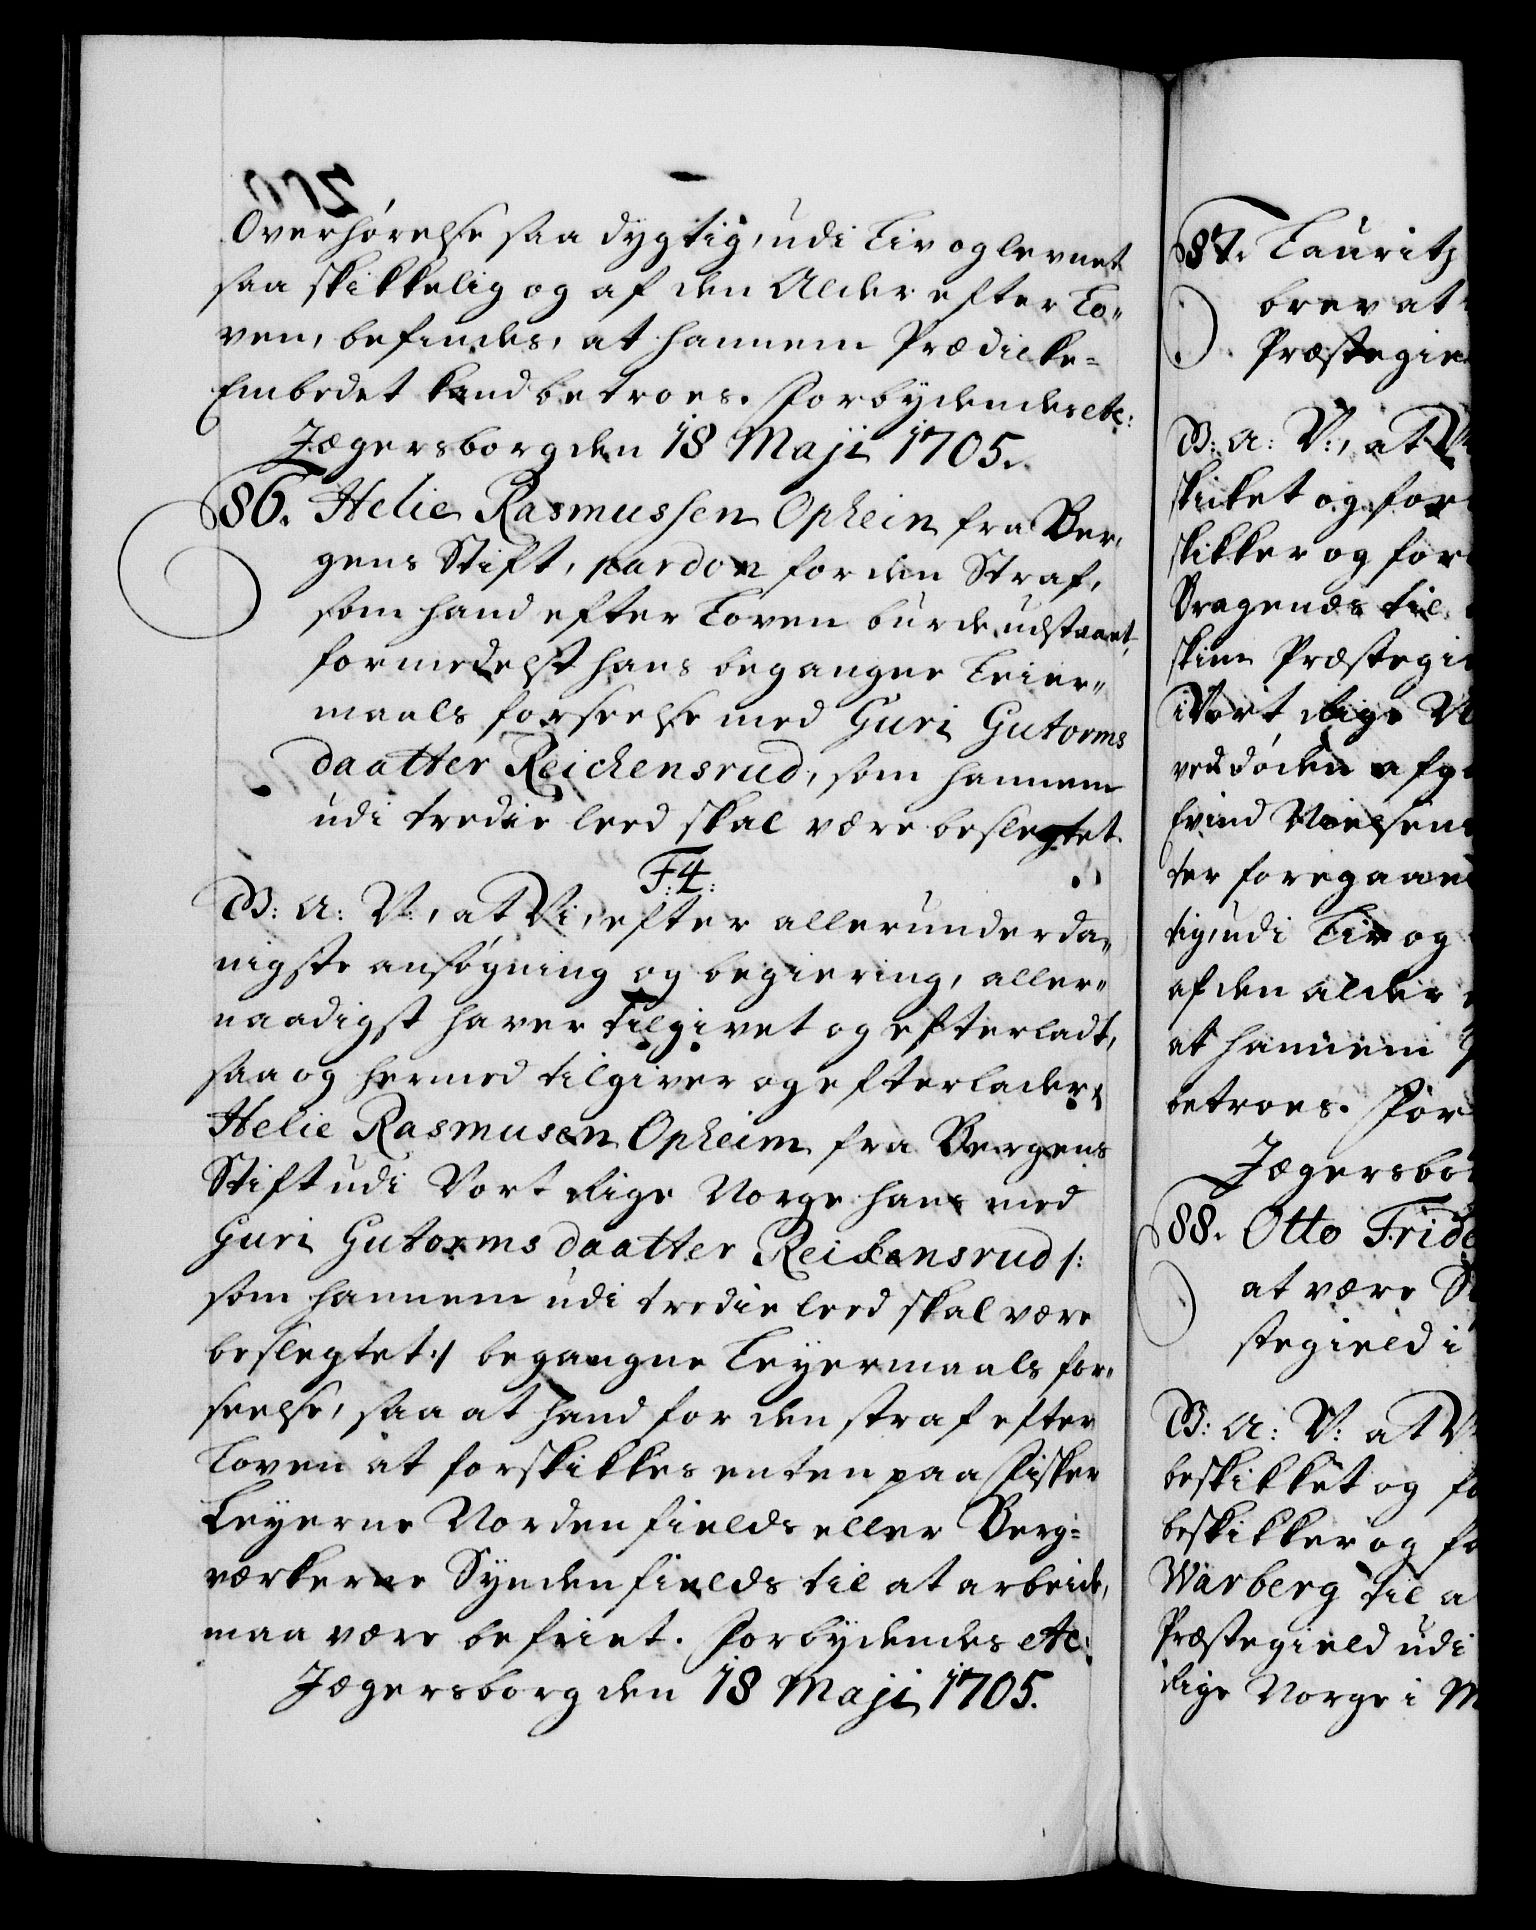 Overhørelse saa dygtig, udi Liv og levnet
saa skikkelig og af den Alder efter Lo„
ven, befindes, at hannem Prædicke=
Embedet kand betroes. Forbydendes etc:
Jægersborg den 18 Maji 1705.
86. Helie Rasmussen Ophein fra Ber„
gens Stift, pardon for den Straf,
som hand efter Loven burde udstaaet,
formedelst hans begangne Leier„
maals forseelse med Guri Gutorms
daatter Reichensrud, som hannem
udi tredie leed skal være beslegtet.
F: 4:
G: A: V:, at Vi, efter allerunderda„
nigste ansøgning og begiering, aller„
naadigst haver tilgivet og efterladt,
saa og hermed tilgiver og efterlader,
Helie Rasmusen Opheim fra Bergens
Stift udi Vort Rige Norge hans med
Guri Gutorms daatter Reikensrud /:
som hannem udi tredie leed skal være
beslegtet :/ begangne Leyermaals for„
seelse, saa at hand for den straf efter
Loven at forskikkes enten paa Fisker
Leyerne Nordenfields eller Berg=
værkerne Syndenfields til at arbeide,
maa være befriet. Forbydendes etc:
Jægersborg den 18 Maji 1705.
87. Lauritz
brev at
Præstegie
G: A: V:, at V
skicket og for
skikker og for
Bragenæs til
skien Præstegi
i Vort Rige N
ved døden afg
Evind Nielsen
ter foregaaen
tig, udi Liv og
af den alder
at hannem
betroes. For
Jægersbor
88. Otto Fride
at være S
stegield i
G: A: V: at V
beskikket og fo
beskikker og fo
Warberg til a
Præstegield udi
Rige Norge i M